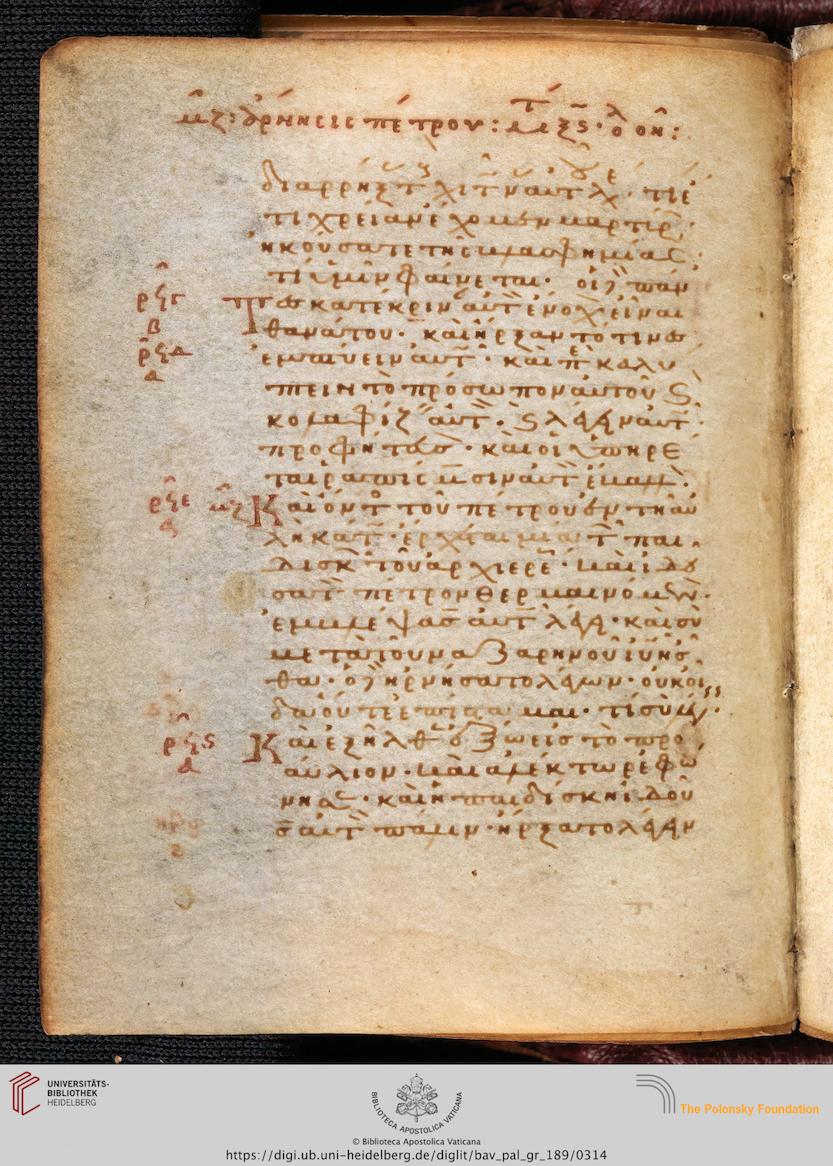 μζ: ἄρνησις πέτρου:
διαρρηξ τ χιτῶναυτ λέγ· τίε
τι χρείαν ἔχομεν μαρτύρ·
ἠκούσατε τῆς βλασφημίας
τί ὑμῖν φαίνεται· οἱ δὲ πάν
ρξγ
τες κατέκριναν αὐτ ἔνοχ εἶναι
β
θανάτου· καὶ ἤρξαντό τινες
ρξδ
ἐμπτύειν αὐτ· καὶ περικαλύ
δ
πτειν τὸ πρόσωπον αὐτοῦ ϗ
κολαφίζ αὐτ· ϗ λέγειν αὐτ
προφήτευσ· καὶ οἱ ὑπηρέ
ται ῥαπίσμασιν αὐτ ἔβαλλ·
ρξε μζ Καὶ ὄντ τοῦ πέτρου ἐν τῆ αὐ
λῆ κάτ· ἔρχεται μία τ παι
δισκ τοῦ ἀρχιερέ· καὶ ἰδοῦ
σα τ πέτρον θερμαινόμεν·
ἐμβλέψασ αὐτ λέγ· καὶ σὺ
μετὰ τοῦ ναζαρηνοῦ ἰυ ἦσ
θα· ὁ δὲ ἠρνήσατο λέγων· οὐκ οἶ
δα οὔτε ἐπίσταμαι· τί σὺ λέγ·
ρξς Καὶ ἐξῆλθεν ἔξω εἰς τὸ προ
δ
αύλιον· καὶ ἀλέκτωρ ἐφώ
νησ· καὶ ἡ παιδίσκη ἰδοῦ
σ αὐτ πάλιν· ἤρξατο λέγειν
UNIVERSITÄTS-
BIBLIOTHEK
HEIDELBERG
BIBLIOTECA APOSTOLICA VATICANA
The Polonsky Foundation
© Biblioteca Apostolica Vaticana
https://digi.ub.uni-heidelberg.de/diglit/bav_pal_gr_189/0314